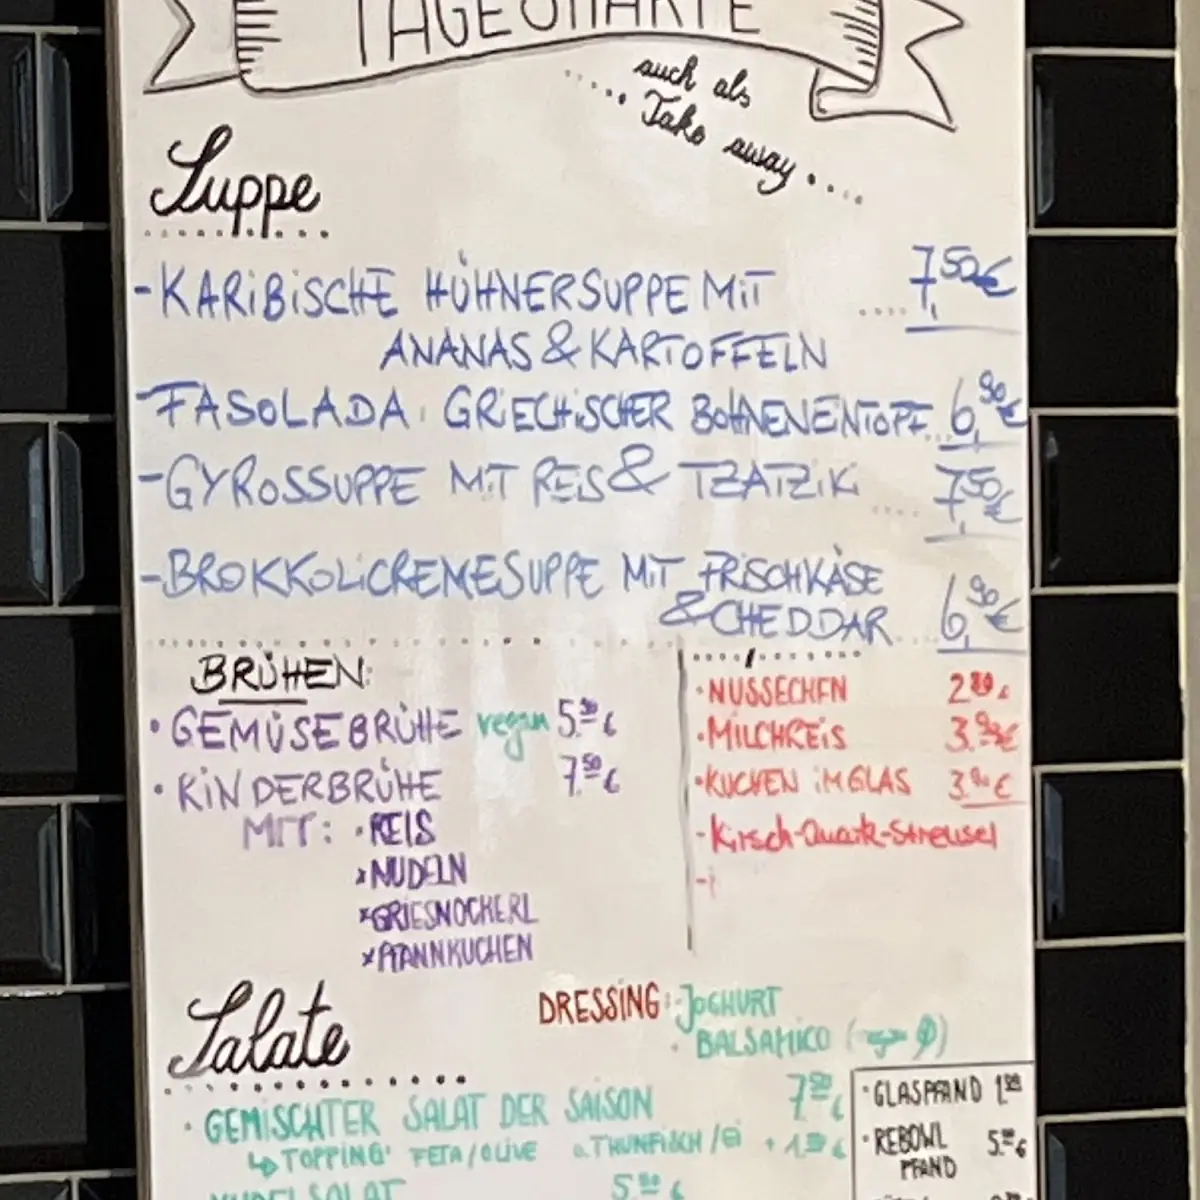 TAGESKARTE
auch als
Take away
Suppe
- KARIBISCHE HÜHNERSUPPE MIT .... 7,50€
ANANAS & KARTOFFELN
- FASOLADA: GRIECHISCHER BOHNENEINTOPF... 6,90€
- GYROSSUPPE MIT REIS & TZATZIKI .... 7,50€
- BROKKOLICREMESUPPE MIT FRISCHKÄSE
& CHEDDAR ... 6,90€
BRÜHEN:
• GEMÜSEBRÜHE vegan
• KINDERBRÜHE 7.50 €
MIT: • REIS
× NUDELN
× GRIESNOCKERL
× PFANNKUCHEN
• NUSSECKEN
• MILCHREIS
• KUCHEN IM GLAS 3.90 €
- Kirsch-Quark-Streusel
Salate
DRESSING: • JOGHURT
• BALSAMICO
• GEMISCHTER SALAT DER SAISON
↳ TOPPING: FETA/OLIVE o. THUNFISCH/EI
NUDELSALAT
• GLASPFAND
• REBOWL
PFAND